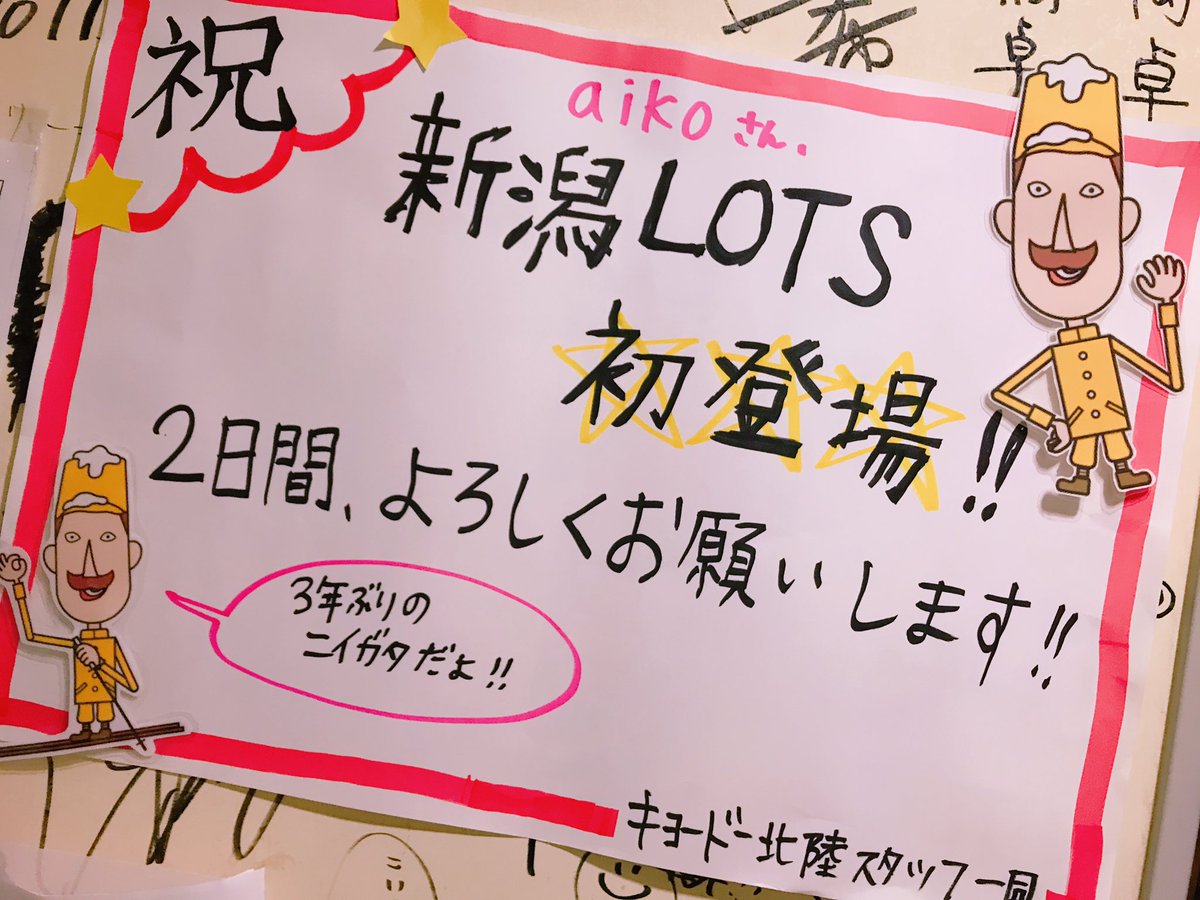 祝
aikoさん.
新潟LOTS
初登場!!
2日間、よろしくお願いします!!
3年ぶりの
ニイガタだよ!!
キョードー北陸スタッフ一同
卓
卓